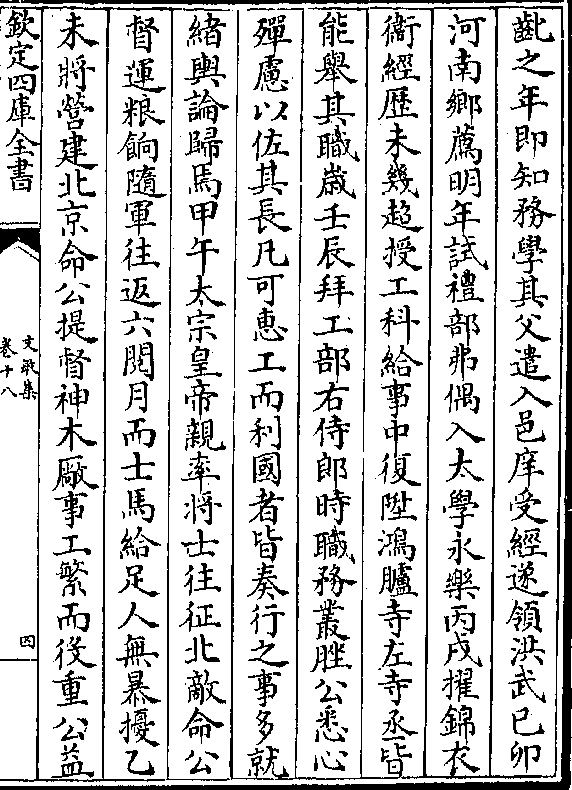 齔之年即知務學其父遣入邑庠受經遂領洪武己卯
河南鄉薦明年試禮部弗偶入太學永樂丙戌擢錦衣
衞經歴未幾超授工科給事中復陞鴻臚寺左寺丞皆
能舉其職嵗壬辰拜工部右侍郎時職務叢脞公悉心
殫慮以佐其長凡可惠工而利國者皆奏行之事多就
緒輿論歸焉甲午太宗皇帝親率將士往征北敵命公
督運粮餉隨軍往返六閱月而士馬給足人無暴擾乙
未將營建北京命公提督神木廠事工繁而役重公益
欽定四庫全書
文敬集
卷十八
四